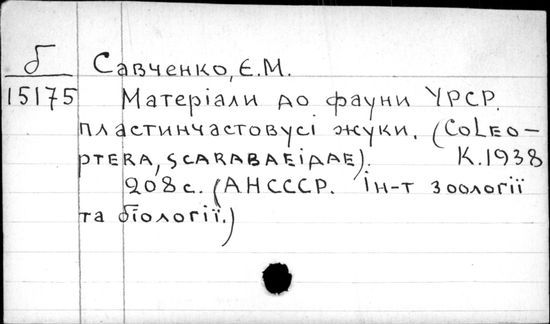 б Савченко, Є.М.
15175 Матеріали до фауни УРСР.
пластинчастовусі жуки. (Coleo-
ptera, scarabaeidae). К.1938
208с. (АНСССР. Ін-т зоології
та біології.)